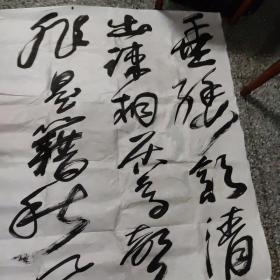 垂緌饮清
出疏桐居高声
非是藉秋风